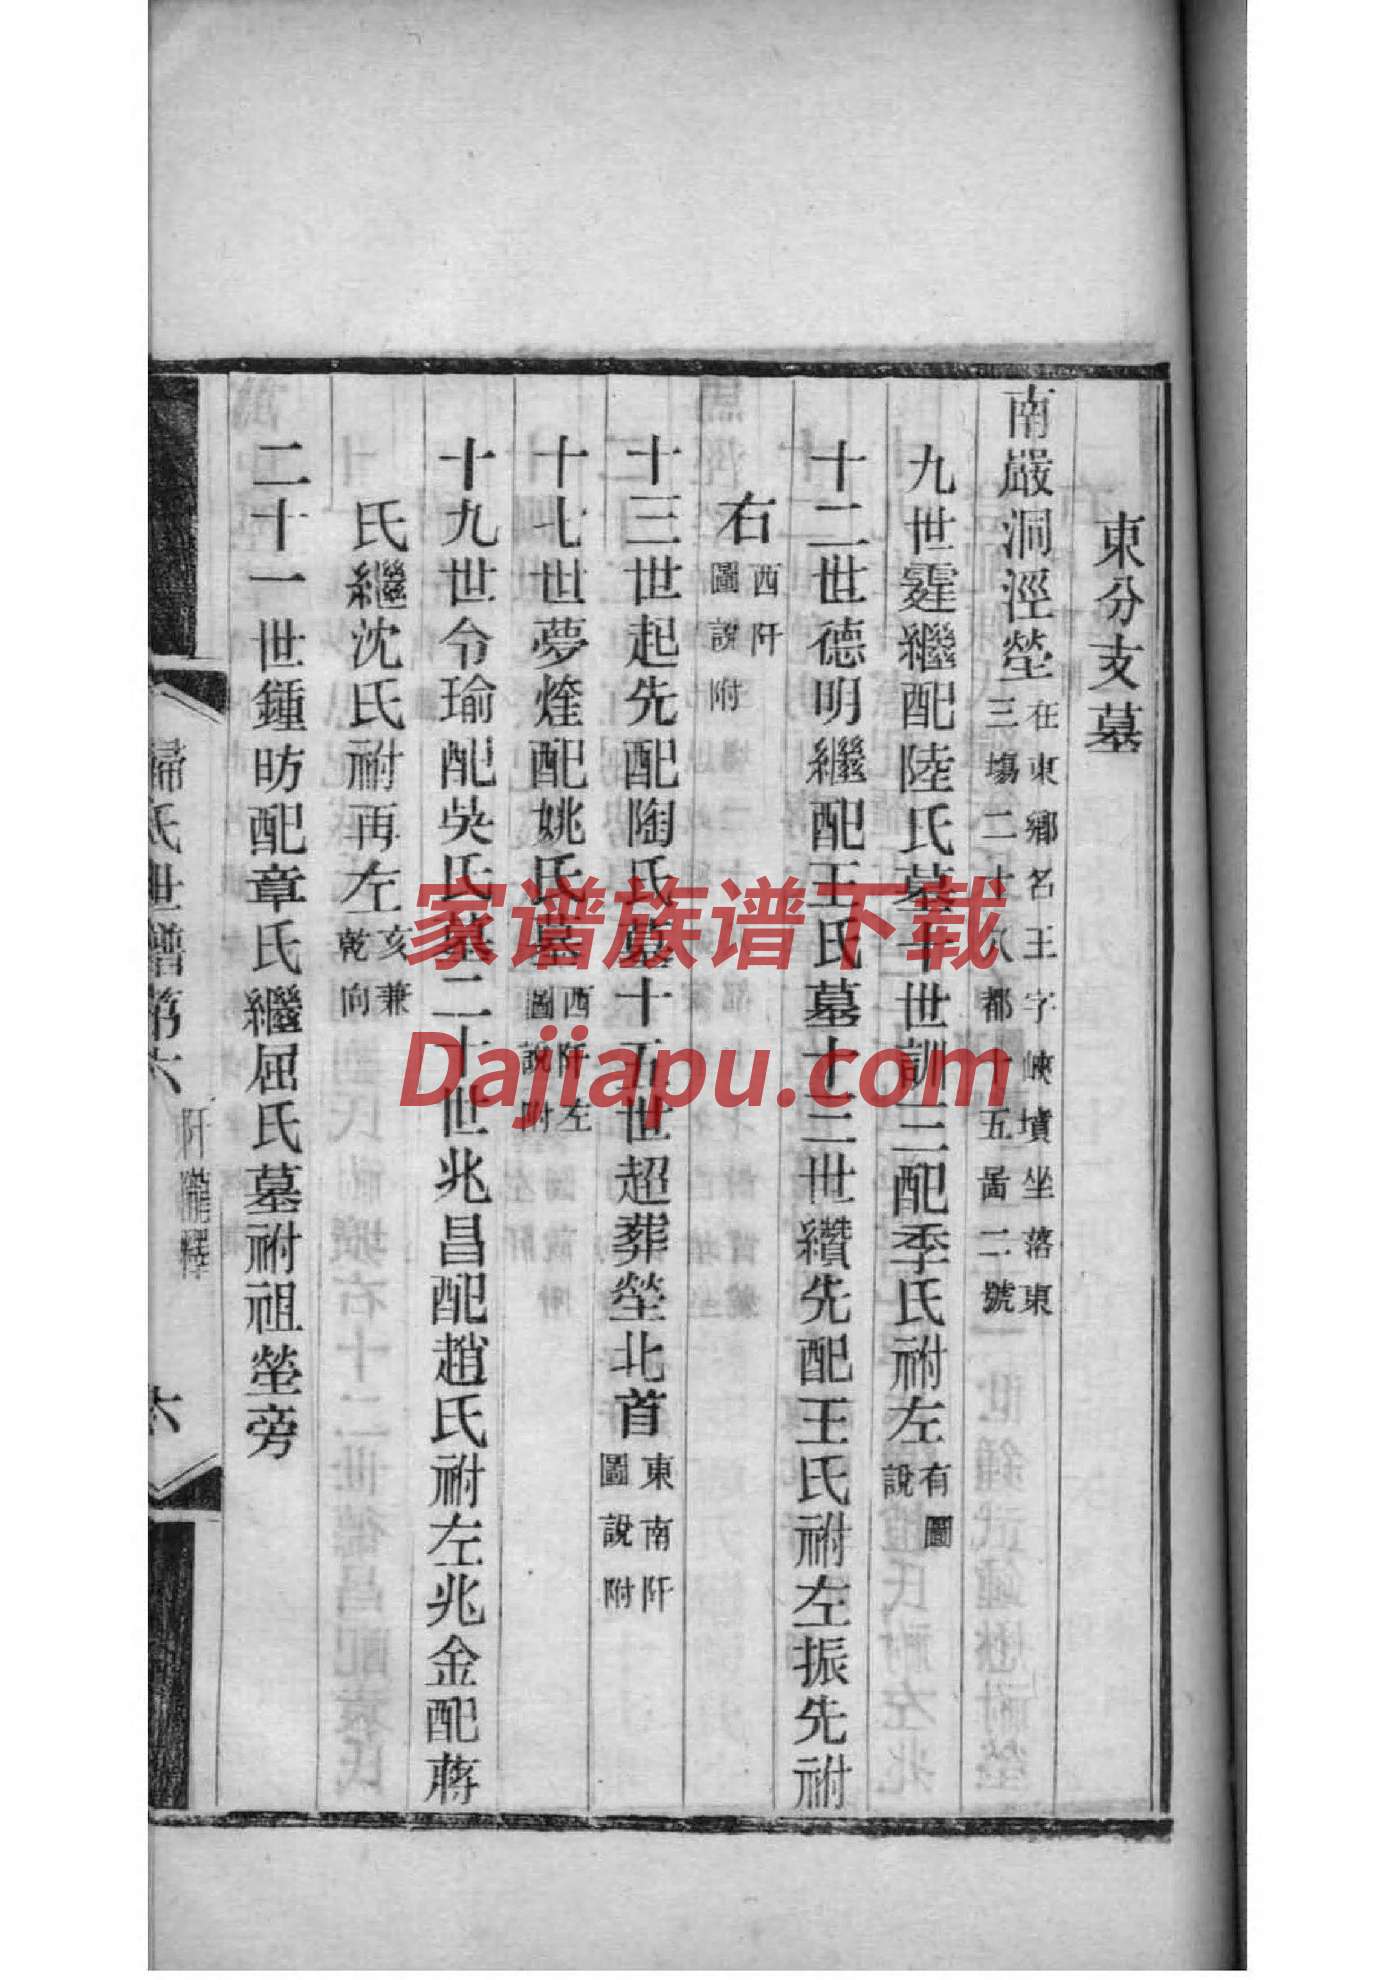 東分支墓
南嚴洞涇塋在東鄉名王字峽墳坐落東三場二十八都十五啚二號
九世霆繼配陸氏墓十世訓三配季氏祔左有圖說
十二世德明繼配王氏墓十三世纘先配王氏祔左振先祔
右西阡圖說附
十三世起先配陶氏墓十五世超葬塋北首東南阡圖說附
十七世夢烇配姚氏墓西阡左圖說附
十九世令瑜配吳氏墓二十世兆昌配趙氏祔左兆金配蔣
氏繼沈氏祔再左亥兼乾向
二十一世鍾昉配章氏繼屈氏墓祔祖塋旁
歸氏世譜第六
阡隴釋
六
家谱族谱下载
Dajiapu.com